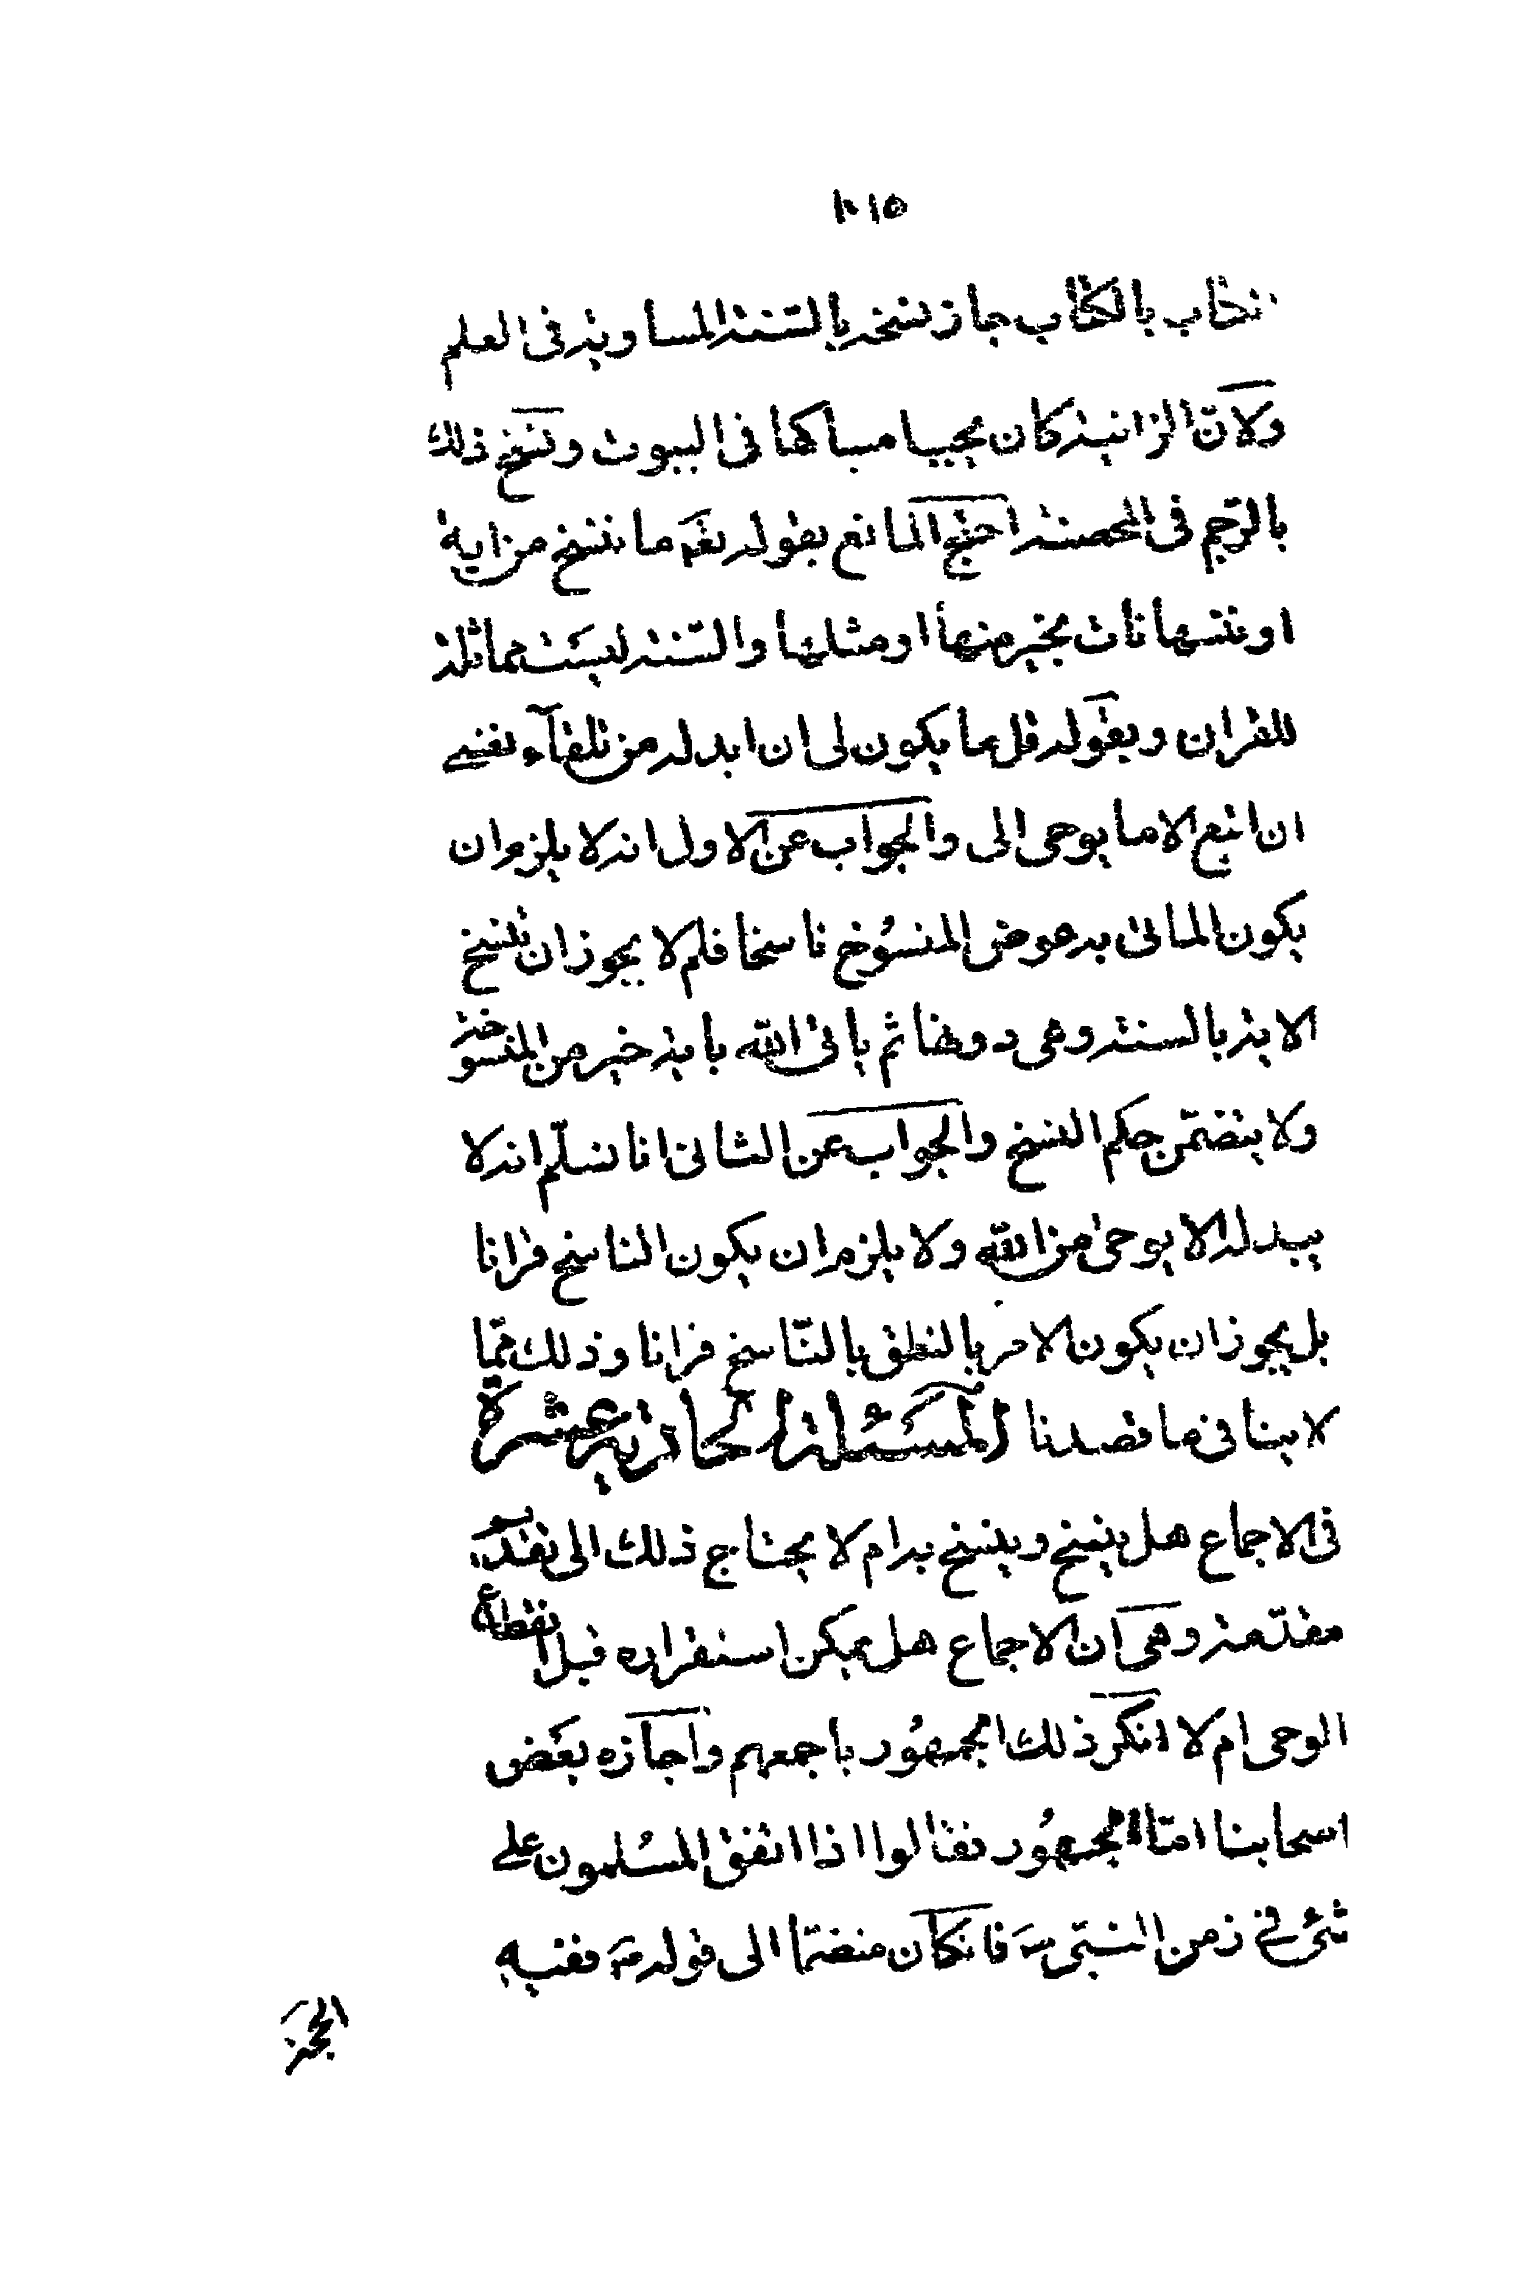 ١٠١٥
الكتاب بالكتاب جاز نسخه بالسّنة المساوية فى العلم
ولانّ الزانية كان يجب امساكها فى البيوت ونسخ ذلك
بالرّجم فى المحصنة احتج المانع بقوله تعَ ما ننسخ من اية
او ننسها نات بخير منها او مثلها والسّنة ليست مماثلة
للقران وبقوله قل ما يكون لى ان ابدله من تلقآء نفسى
ان اتبع الا ما يوحى الى والجواب عن الاول انه لا يلزم ان
يكون الماتى به عوض المنسُوخ ناسخا فلم لا يجوز ان ننسخ
الاية بالسنة وهى دونها ثم ياتى الله باية خير من المنسوخة
ولا يتضمّن حكم النسخ والجواب عن الثانى انا نسلّم انه لا
يبدله الا بوحى من الله ولا يلزم ان يكون الناسخ قرانا
بل يجوز ان يكون الامر بالنطق بالنّاسخ قرانا وذلك ممّا
لا ينافى ما قصدنا المسئلة الحادية عشرة
فى الاجماع هل ينسخ وينسخ به ام لا يحتاج ذلك الى تقديم
مقدّمة وهى ان الاجماع هل يمكن استقراره قبل انقطاع
الوحى ام لا انكر ذلك الجمهُور باجمعهم واجازه بعض
اصحابنا امّا الجمهُور فقالوا اذا اتفق المسُلمون على
شئ فى زمن النبّى صَ فانكان منضمّا الى قوله صَ ففيه
الحجة